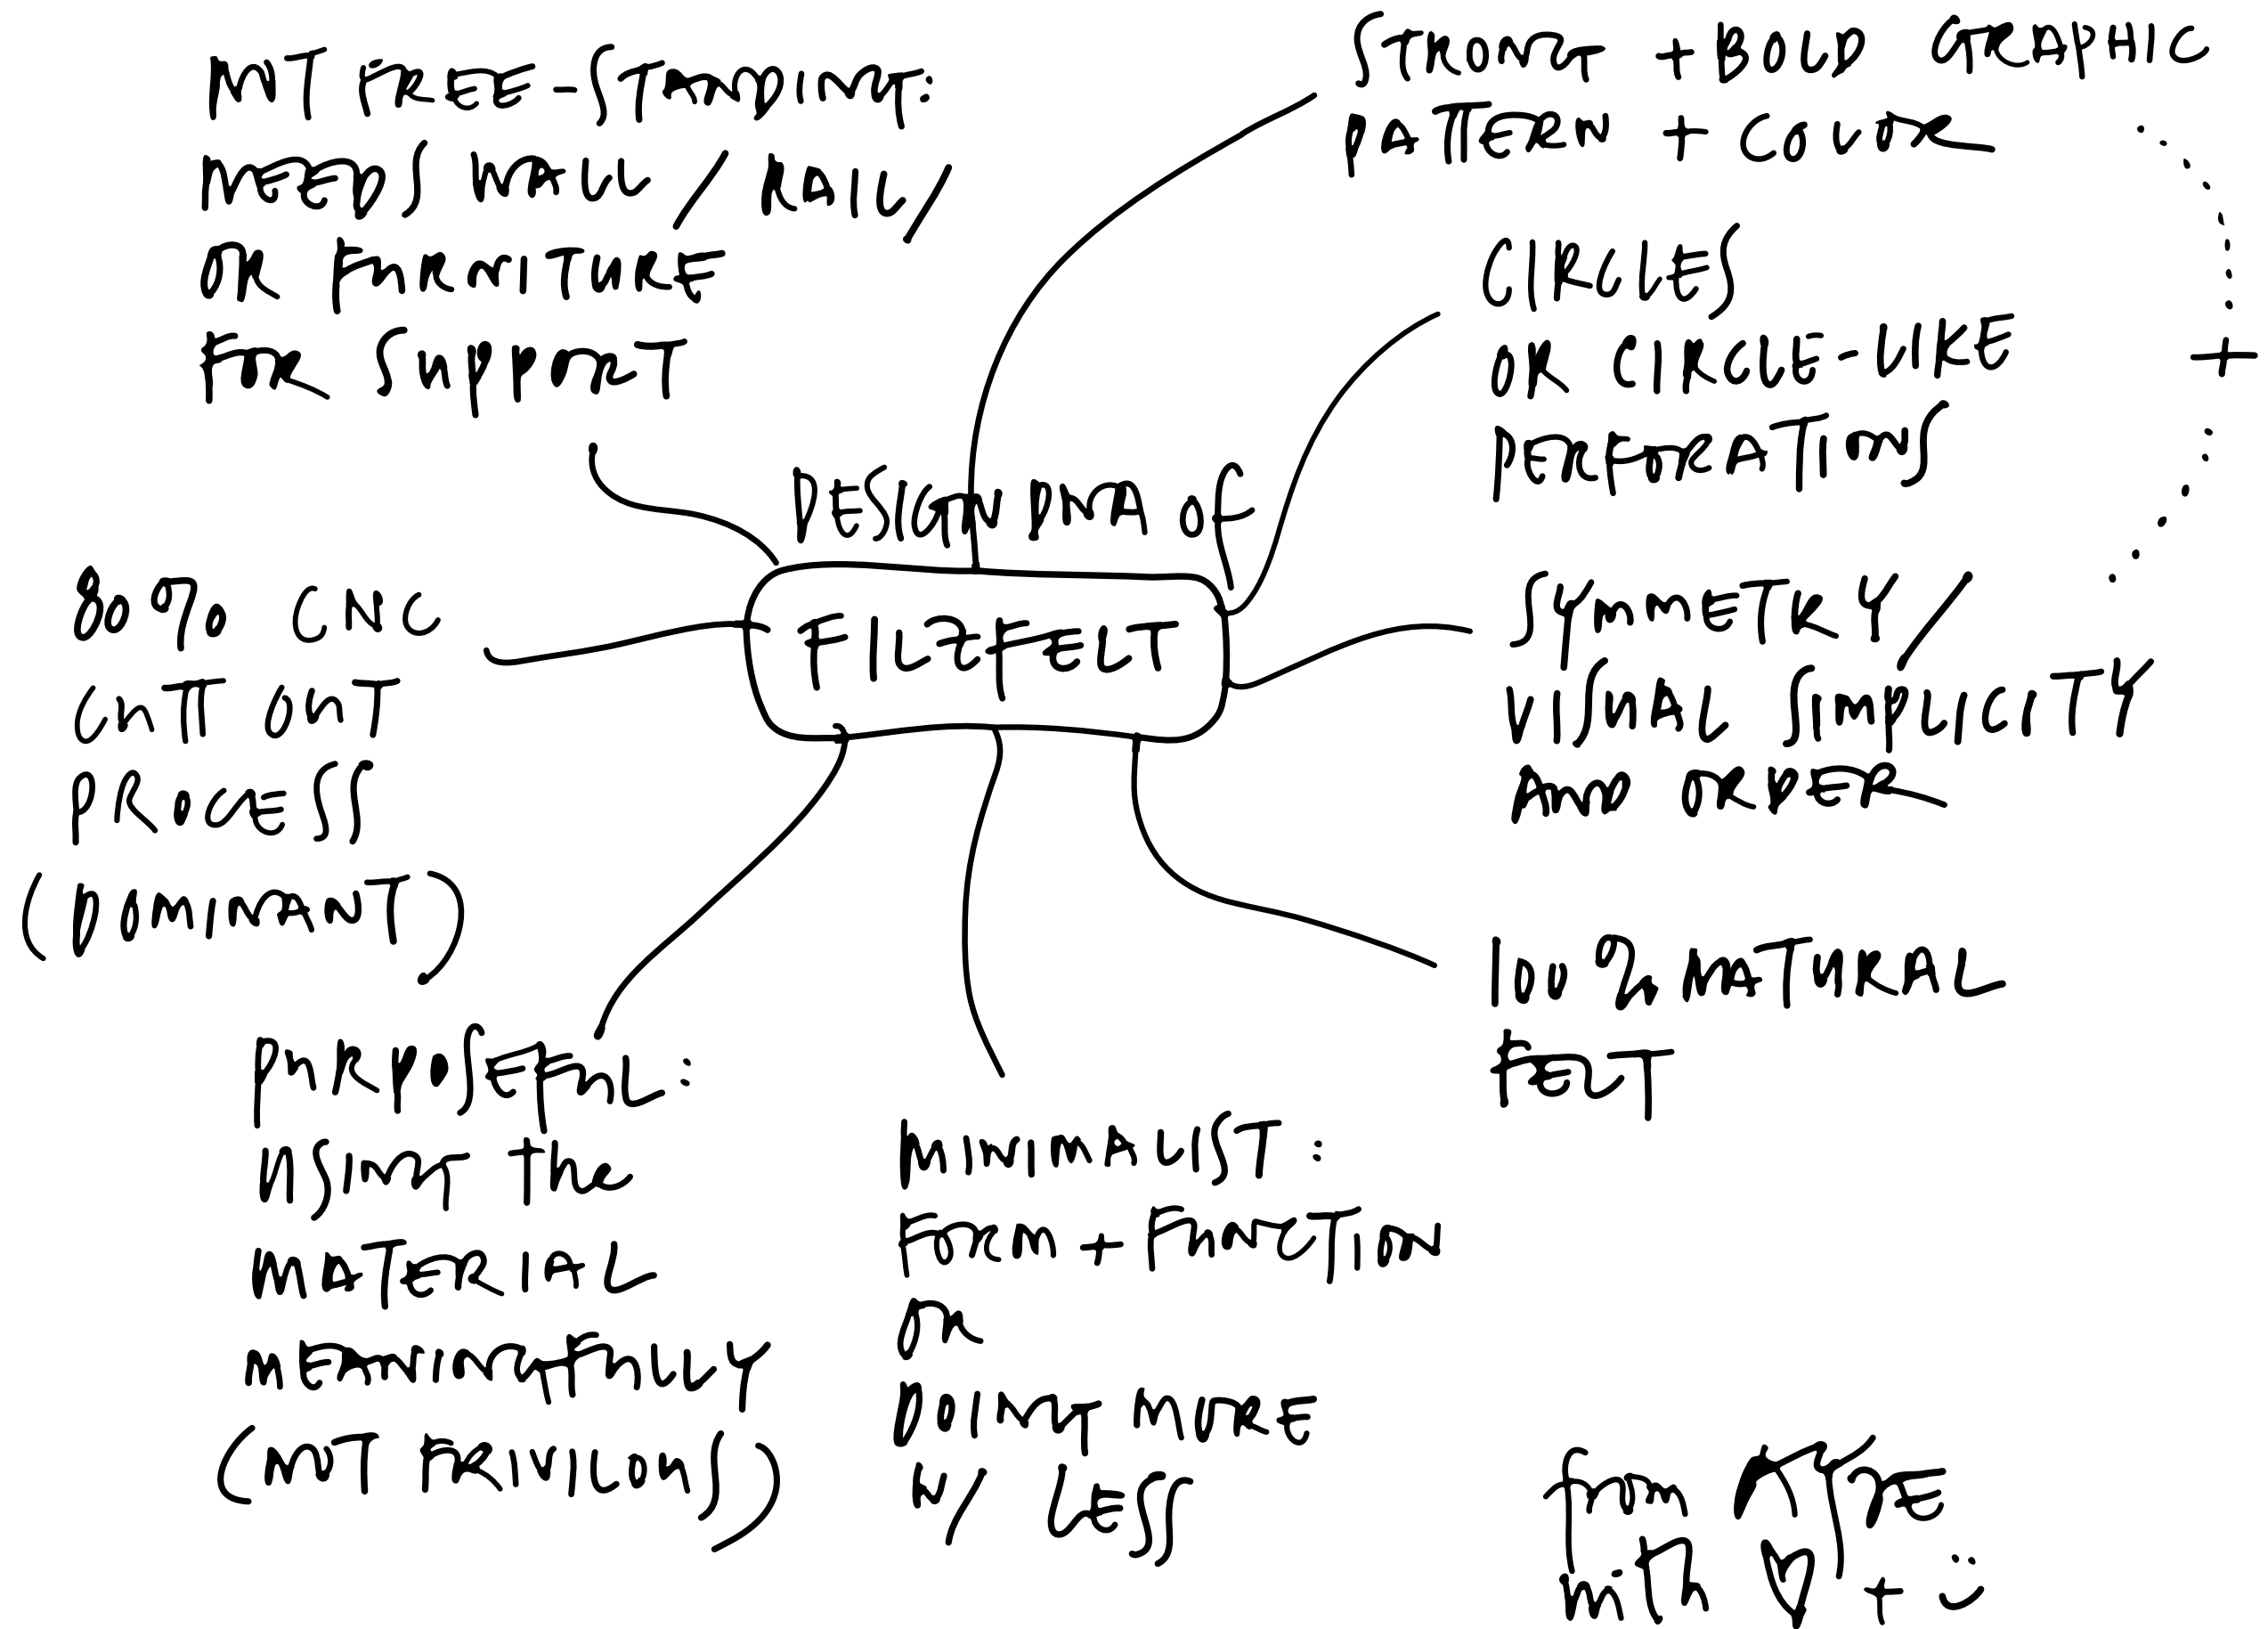 NOT FREE-STANDING:
NEEDS WALL/RAIL/
OR FURNITURE
FOR SUPPORT
STRONG + BOLD GRAPHIC
PATTERN + COLOR
CIRCLES
OR CIRCLE-LIKE
PERFORATIONS
+
DESIGN DNA OF
FILZFELT
80% CNC
CUTT OUT
PROCESS
(DOMINANT)
SYMMETRY/
VISUAL SIMPLICITY
AND ORDER
100% NATURAL
FELT
PURPOSEFUL:
USING THE
MATERIAL
MEANINGFULLY
(NOT FRIVILOUS)
MINIMALIST:
FORM + FUNCTION
OR
DOING MORE
W/ LESS
from
with ♥ + :)